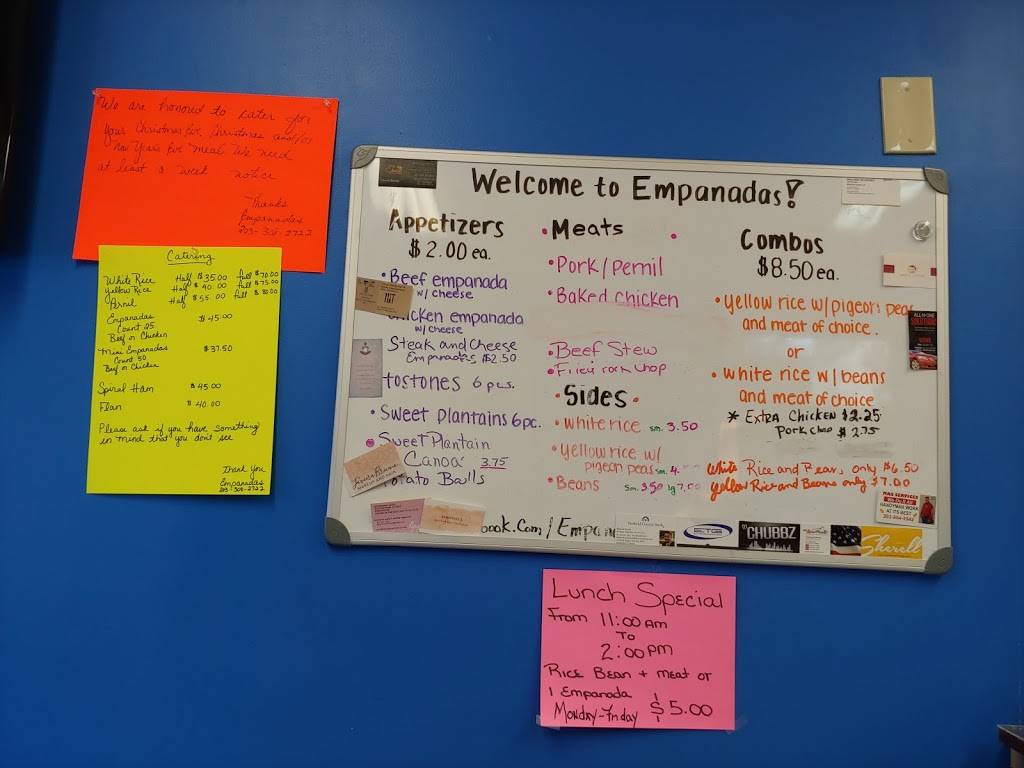 We are honored to cater for
your Christmas Eve, Christmas and/or
New Years Eve meal. We need
at least a week notice
Thanks
Empanadas
203-308-2722
Catering
White Rice Half $35.00 full $70.00
Yellow Rice Half $40.00 full $75.00
Pernil Half $55.00 full $80.00
Empanadas $45.00
Count 25
Beef or Chicken
Mini Empanadas $37.50
Count 50
Beef or Chicken
Spiral Ham $45.00
Flan $40.00
Please ask if you have something
in mind that you don't see
Thank you
Empanadas
203-308-2722
Welcome to Empanadas!
Appetizers
$2.00 ea.
• Beef empanada
w/ cheese
chicken empanada
w/cheese
Steak and Cheese
Empanadas $2.50
tostones 6 pcs.
• Sweet Plantains 6pc.
• Sweet Plantain
Canoa 3.75
Potato Balls
• Meats
• Pork/Pernil
• Baked Chicken
• Beef Stew
• Fried Pork Chop
• Sides •
• White rice sm. 3.50
• Yellow rice w/
pigeon peas sm 4.
• Beans sm. 3.50 lg 7.00
Combos
$8.50 ea.
• yellow rice w/pigeon peas
and meat of choice.
or
• white rice w/beans
and meat of choice
* Extra Chicken $2.25
Pork Chop $2.75
White Rice and Beans only $6.50
Yellow Rice and Beans only $7.00
book.Com/Empan
ALL-IN-ONE
MAG SERVICES
HANDYMAN WORK
AT ITS BEST
CHUBBZ
Sherell
Lunch Special
From 11:00 AM
To
2:00 PM
Rice Bean + meat or
1 Empanada
Monday-Friday $5.00